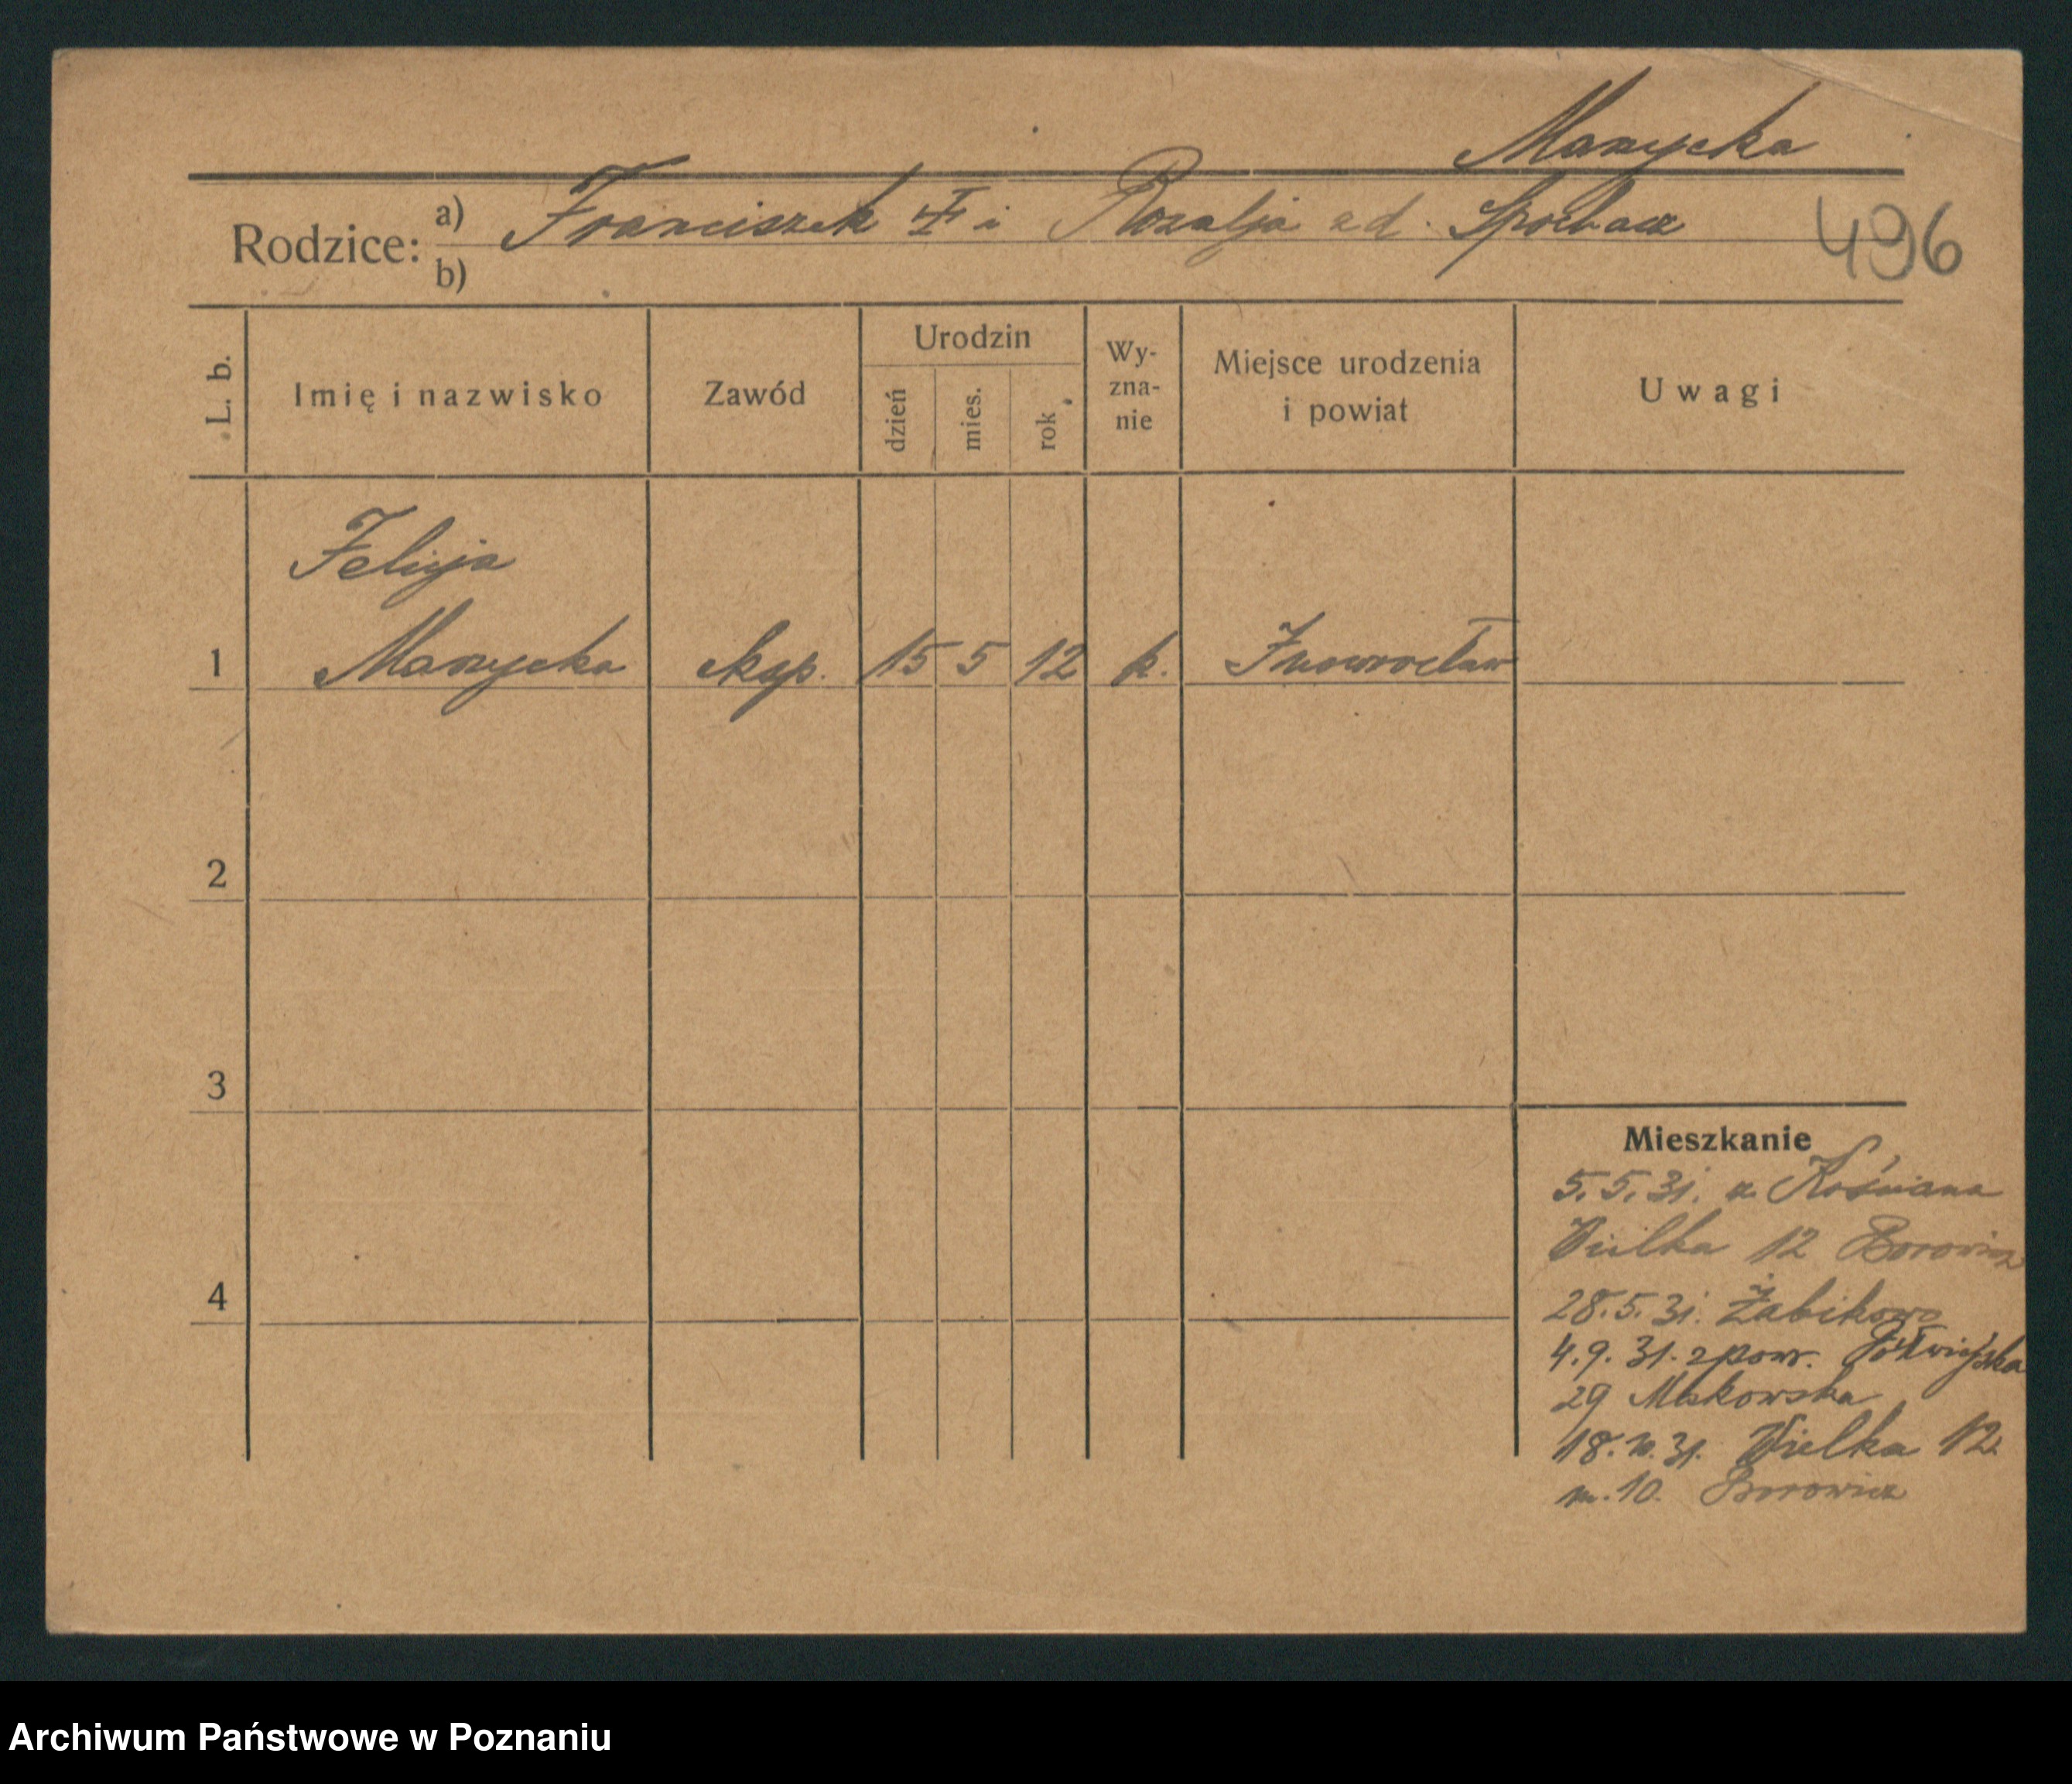 Manycka
Rodzice: a) Franciszek i Rozalja zd.
b)
496
L. b. Imię i nazwisko Zawód Urodzin dzień mies. rok Wy-zna-nie Miejsce urodzenia i powiat Uwagi
Felicja
1 Manycka eksp. 15 5 12 k. Inowrocław
2
3
4
Mieszkanie
5.5.31. z Kościana
Wielka 12 Borowicz
28.5.31. Żabikowo
4.9.31. zpow. Półwiejska
29 Makowska
18.10.31. Wielka 12
m. 10. Borowicz
Archiwum Państwowe w Poznaniu